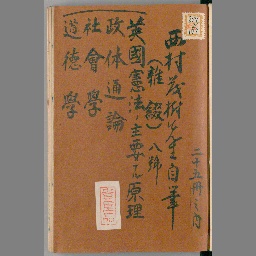 西村茂樹先生自筆
(雑綴) 八號
英國憲法ノ主要ナル原理
政体通論
社會學
道德學
二十五冊之内